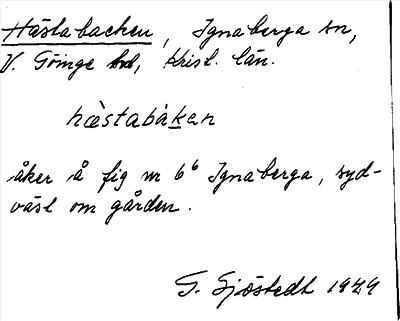 Hästabacken, Ignaberga sn,
V. Göinge hd, Krist. län.
hæ̀stabàken
åker å fig nr 6⁶ Ignaberga, syd-
väst om gården.
G. Sjöstedt 1929